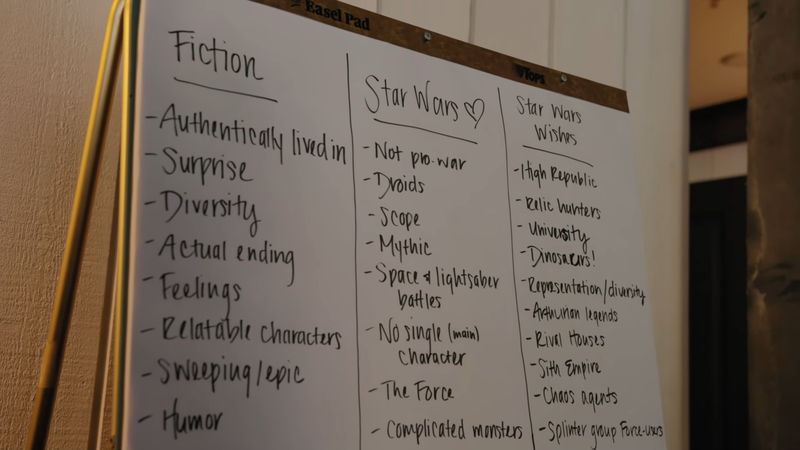 Easel Pad
Tops
Fiction
- Authentically lived in
- Surprise
- Diversity
- Actual ending
- Feelings
- Relatable characters
- Sweeping/epic
- Humor
Star Wars ♡
- Not pro-war
- Droids
- Scope
- Mythic
- Space & lightsaber
battles
- No single (main)
character
- The Force
- Complicated monsters
Star Wars
Wishes
- High Republic
- Relic hunters
- University
- Dinosaurs!
- Representation/diversity
- Arthurian legends
- Rival Houses
- Sith Empire
- Chaos agents
- Splinter group Force-users